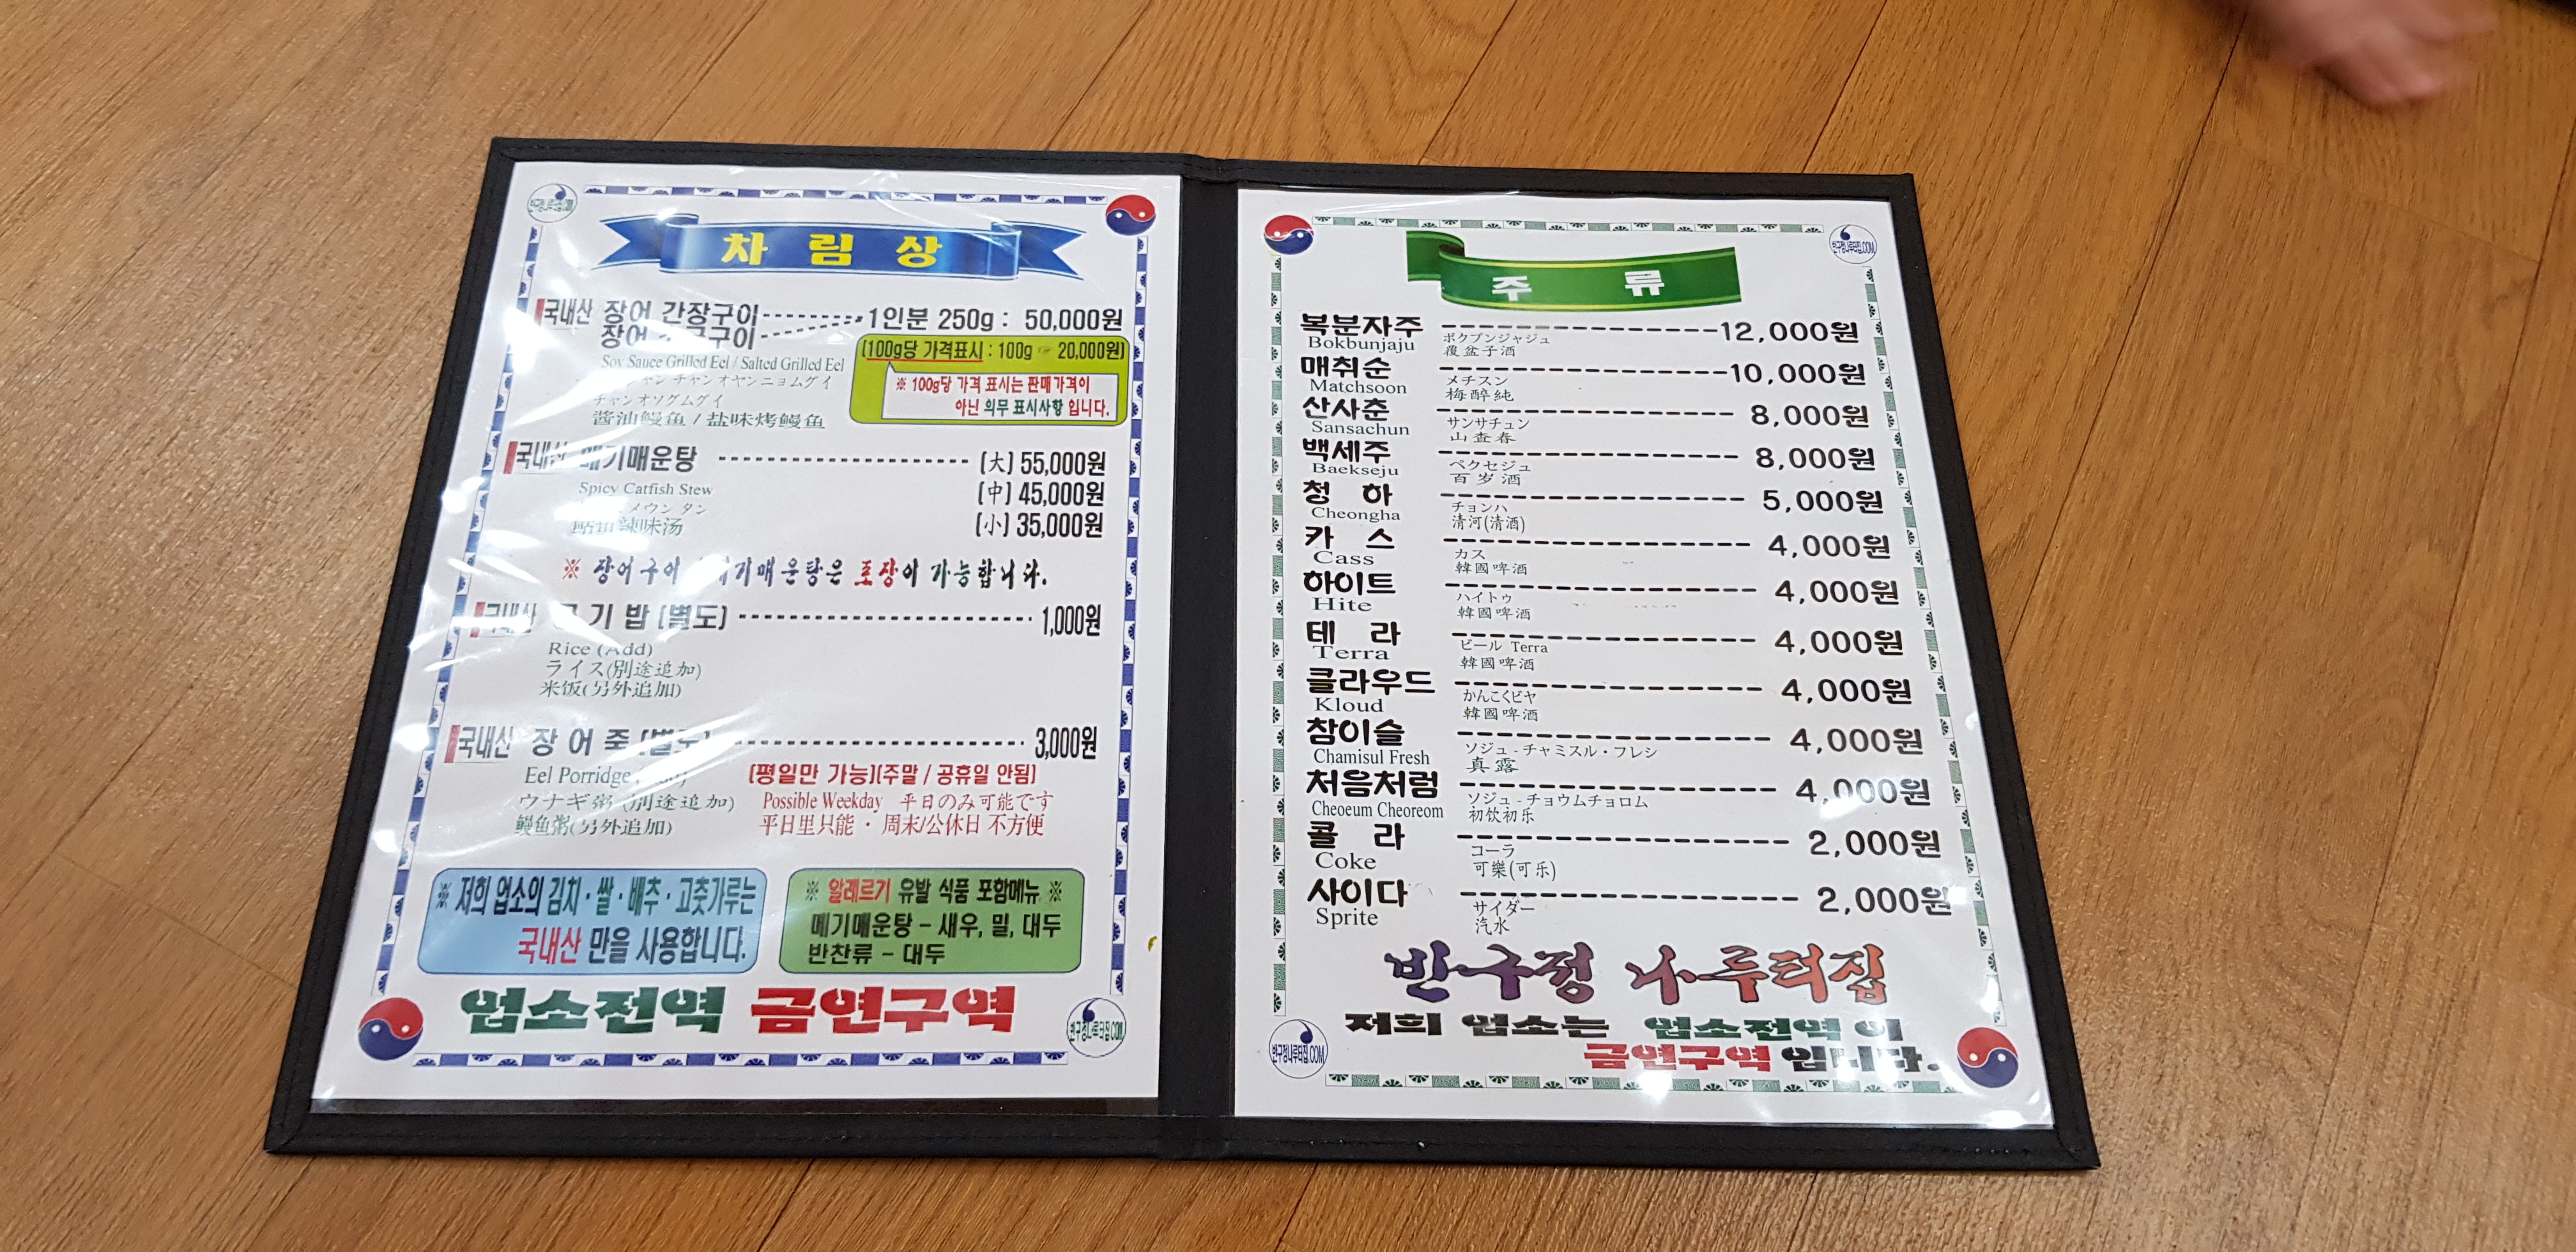 차림상
국내산 장어 간장구이 1인분 250g : 50,000원
장어 구이
(100g당 가격표시 : 100g ☞ 20,000원)
※ 100g당 가격 표시는 판매가격이
아닌 의무 표시사항 입니다.
Soy Sauce Grilled Eel / Salted Grilled Eel
チャンオヤンニョムグイ
チャンオソグムグイ
醬油鳗鱼 / 盐味烤鳗鱼
국내산 메기매운탕 (大) 55,000원
Spicy Catfish Stew (中) 45,000원
メウン タン
辣味汤 (小) 35,000원
※ 장어구이 메기매운탕은 포장이 가능합니다.
국내산 공기밥 (별도) 1,000원
Rice (Add)
ライス(別途追加)
米饭(另外追加)
국내산 장어죽 (별도) 3,000원
Eel Porridge (평일만 가능)(주말 / 공휴일 안됨)
ウナギ粥 (別途追加) Possible Weekday 平日のみ可能です
鳗鱼粥(另外追加) 平日里只能 · 周末/公休日 不方便
※ 저희 업소의 김치 · 쌀 · 배추 · 고춧가루는
국내산 만을 사용합니다.
※ 알레르기 유발 식품 포함메뉴 ※
메기매운탕 - 새우, 밀, 대두
반찬류 - 대두
업소전역 금연구역
반구정나루터집.COM
주류
반구정나루터집.COM
복분자주 12,000원
Bokbunjaju ボクブンジャジュ
覆盆子酒
매취순 10,000원
Matchsoon メチスン
梅醉純
산사춘 8,000원
Sansachun サンサチュン
山査春
백세주 8,000원
Baekseju ペクセジュ
百岁酒
청하 5,000원
Cheongha チョンハ
清河(清酒)
카스 4,000원
Cass カス
韓國啤酒
하이트 4,000원
Hite ハイトゥ
韓國啤酒
테라 4,000원
Terra ビール Terra
韓國啤酒
클라우드 4,000원
Kloud かんこくビヤ
韓國啤酒
참이슬 4,000원
Chamisul Fresh ソジュ - チャミスル・フレシ
真露
처음처럼 4,000원
Cheoeum Cheoreom ソジュ - チョウムチョロム
初饮初乐
콜라 2,000원
Coke コーラ
可樂(可乐)
사이다 2,000원
Sprite サイダー
汽水
반구정 나루터집
저희 업소는 업소전역이
금연구역 입니다.
반구정나루터집.COM